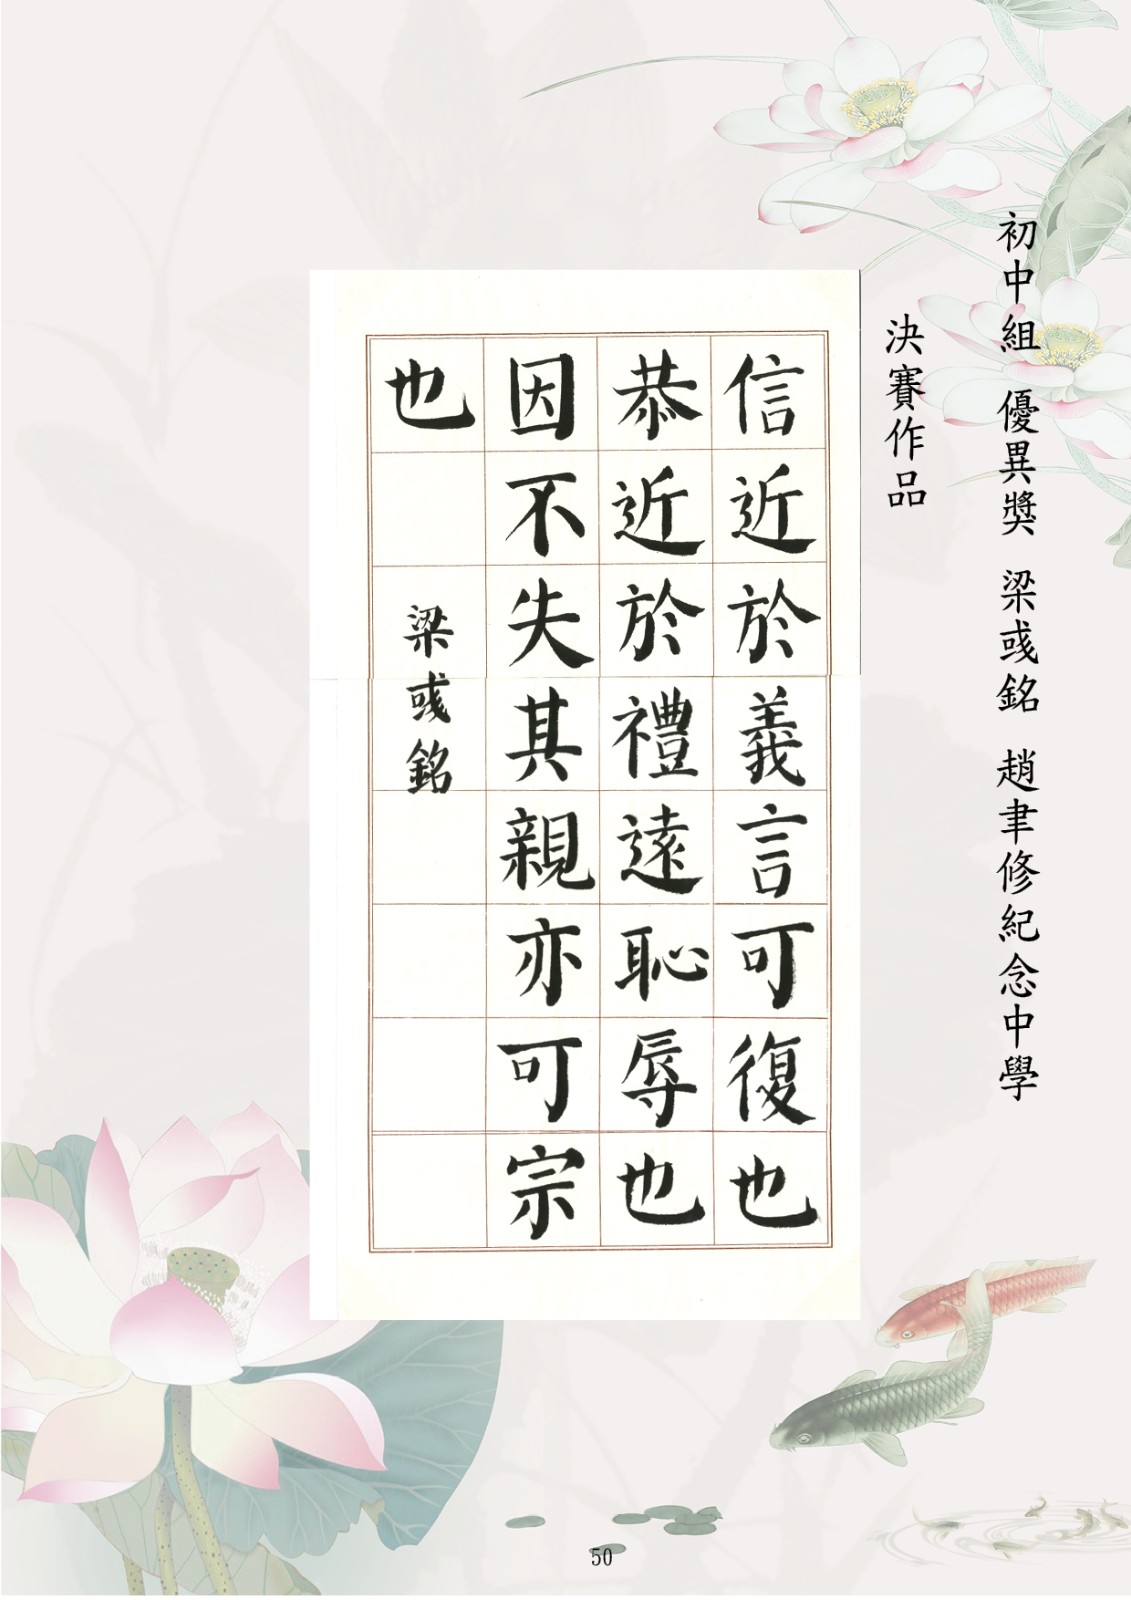 初中組 優異獎 梁彧銘 趙聿修紀念中學
決賽作品
信近於義言可復也
恭近於禮遠恥辱也
因不失其親亦可宗
也
梁彧銘
50